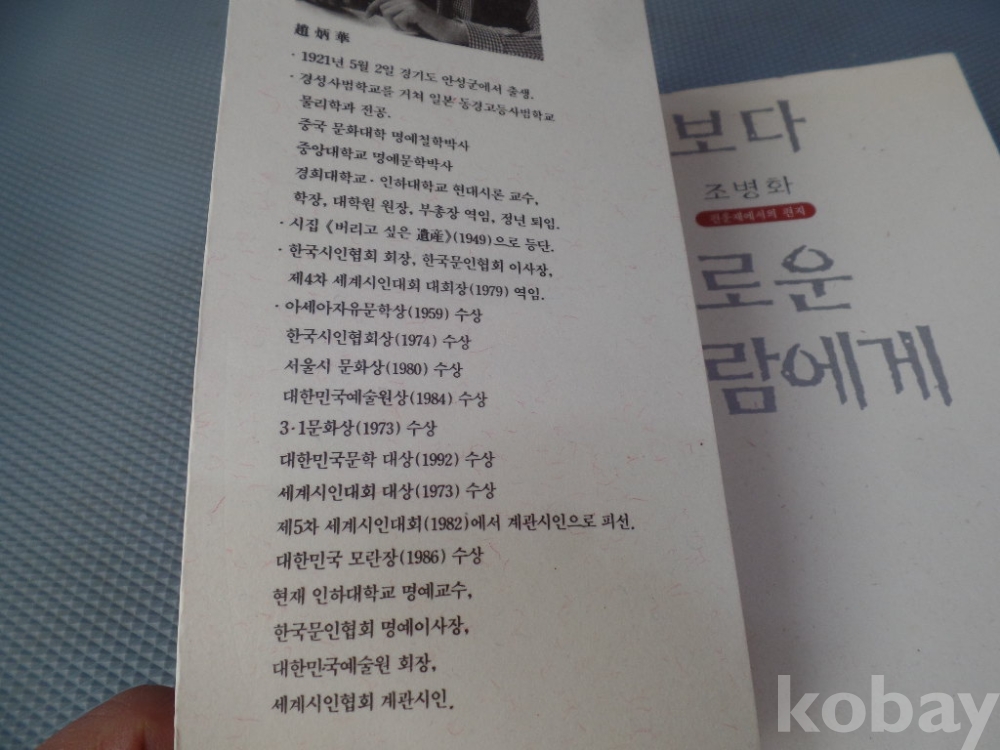 趙炳華
· 1921년 5월 2일 경기도 안성군에서 출생.
· 경성사범학교를 거쳐 일본 동경고등사범학교
물리학과 전공.
중국 문화대학 명예철학박사
중앙대학교 명예문학박사
경희대학교 · 인하대학교 현대시론 교수,
학장, 대학원 원장, 부총장 역임, 정년 퇴임.
· 시집 《버리고 싶은 遺産》(1949)으로 등단.
· 한국시인협회 회장, 한국문인협회 이사장,
제4차 세계시인대회 대회장(1979) 역임.
· 아세아자유문학상(1959) 수상
한국시인협회상(1974) 수상
서울시 문화상(1980) 수상
대한민국예술원상(1984) 수상
3·1문화상(1973) 수상
대한민국문학 대상(1992) 수상
세계시인대회 대상(1973) 수상
제5차 세계시인대회(1982)에서 계관시인으로 피선.
대한민국 모란장(1986) 수상
현재 인하대학교 명예교수,
한국문인협회 명예이사장,
대한민국예술원 회장,
세계시인협회 계관시인.
보다
조병화
편운재에서의 편지
로운
람에게
kobay